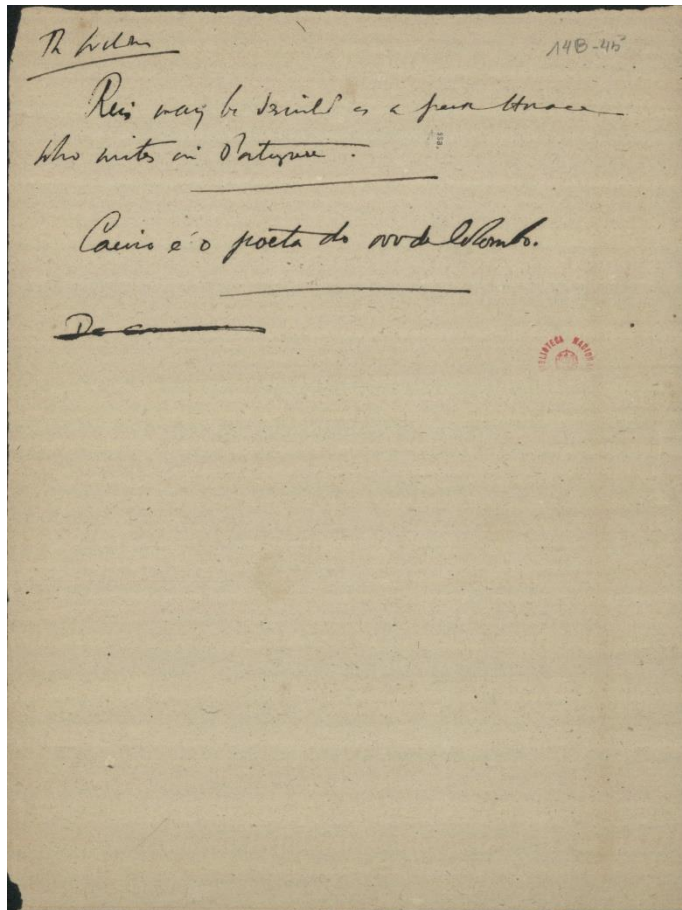 14B-45
Reis may be described as a Greek Horace
who writes in Portuguese.
Caeiro é o poeta do ovo de Colombo.
De
BIBLIOTECA NACIONAL